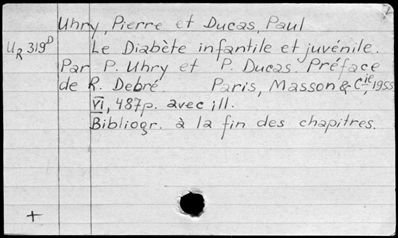 Uhry, Pierre et Ducas, Paul
UR 319D Le Diabète infantile et juvénile.
Par P. Uhry et P. Ducas. Préface
de R. Debré. Paris, Masson & Cie, 1955
VI, 487p. avec ill.
Bibliogr. à la fin des chapitres.
+